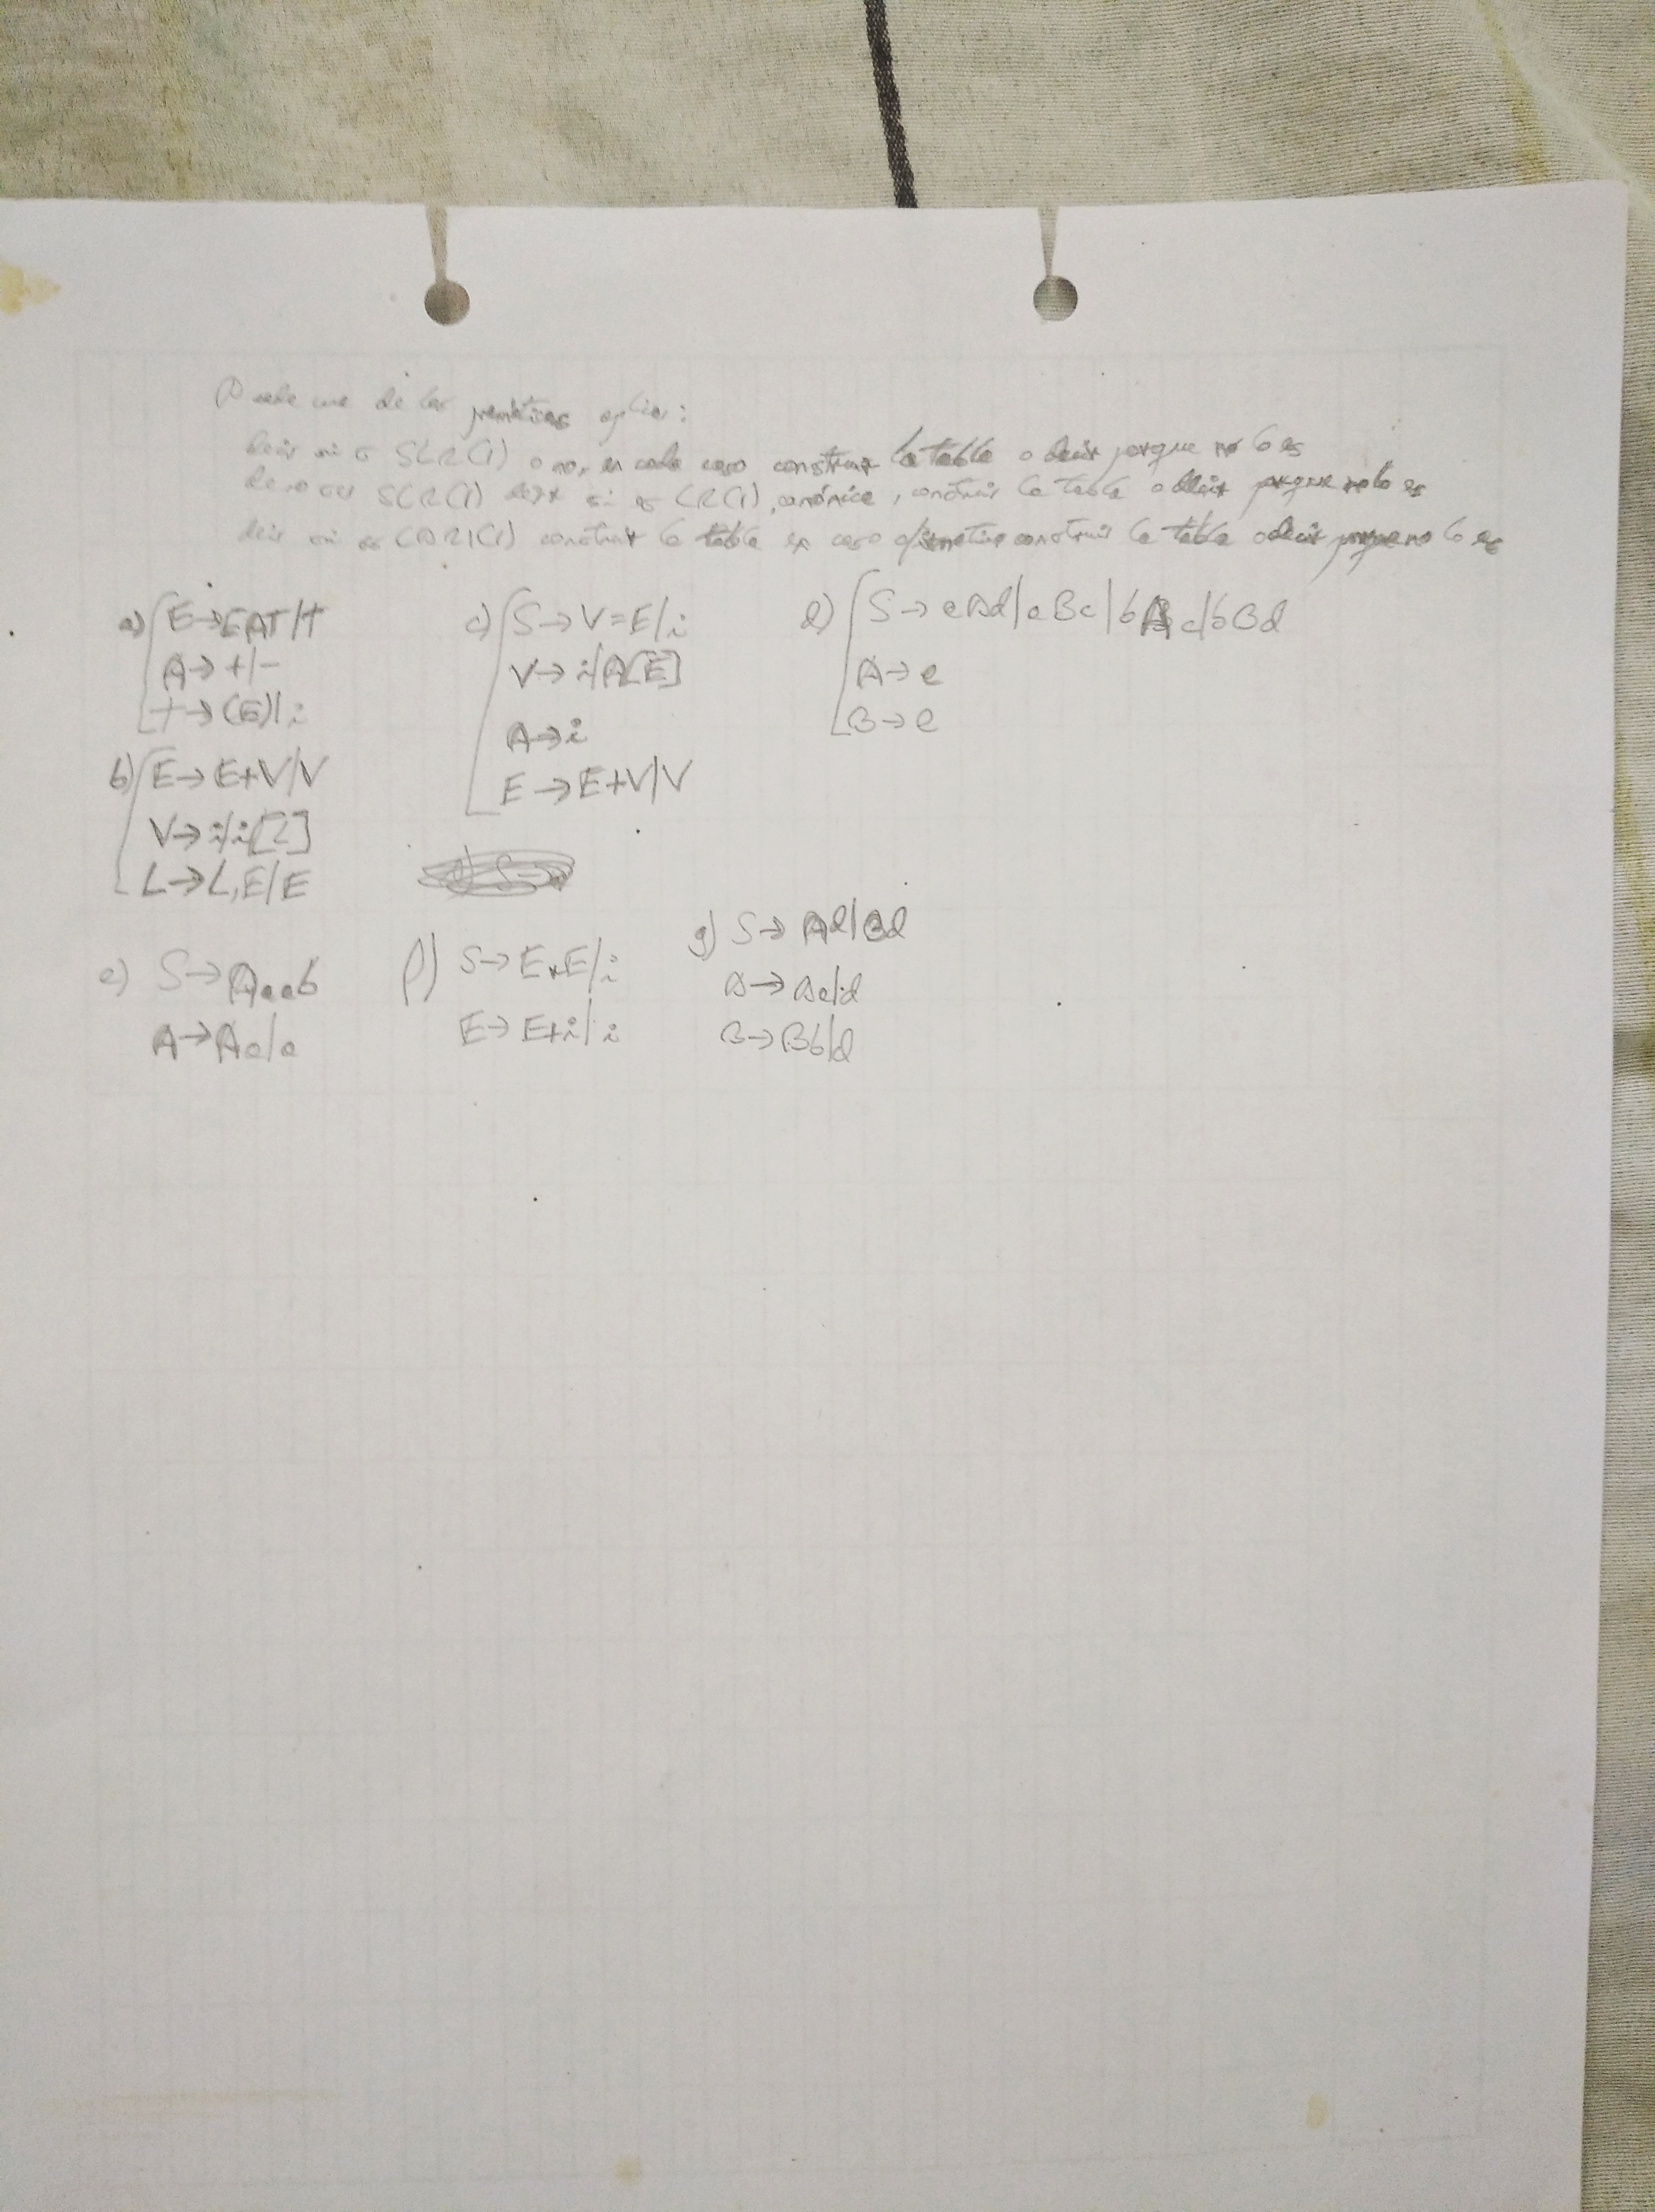 cada una de las gramáticas aplicar:
decir si es SLR(1) o no, en cada caso construir la tabla o decir porque no lo es
de no ser SLR(1) decir si es LR(1) canónica, construir la tabla o decir porque no lo es
decir si es LALR(1) construir la tabla en caso afirmativo construir la tabla o decir porque no lo es
a) E→EAT/T
A→+/-
T→(E)/i
b) E→E+V/V
V→i/i[L]
L→L,E/E
c) S→V=E/i
V→i/A[E]
A→i
E→E+V/V
d) S→eAd/eBc/bAc/bBd
A→e
B→e
e) S→Aaab
A→Aa/a
f) S→E*E/i
E→E+i/i
g) S→Ad/Bd
A→Aa/d
B→Bb/d